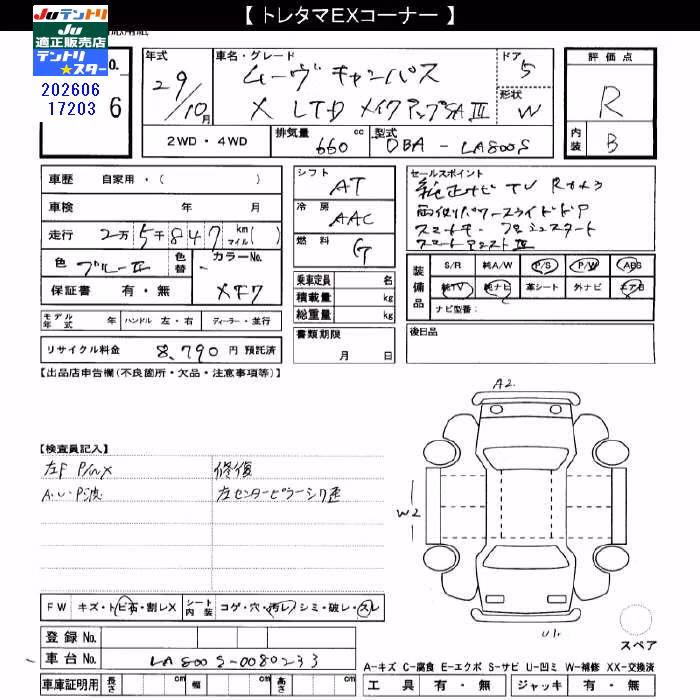 【 トレタマEXコーナー 】
Juテントリ
Ju
適正販売店
テントリ
★スター
202606
17203
No.
6
年式
29/10月
車名・グレード
ムーヴキャンバス
X LTD メイクアップSAⅢ
ドア
5
形状
W
評価点
R
内装
B
2WD ・ 4WD
排気量
660 cc
型式
DBA - LA800S
車歴 自家用・( )
車検 年 月
走行 2万5千847 km マイル( )
色 ブルーⅡ 色替
カラーNo.
XF7
保証書 有・無
モデル年式 年
ハンドル 左・右
ディーラー・並行
リサイクル料金 8,790 円 預託済
シフト
AT
冷房
AAC
燃料
G
乗車定員 名
積載量 kg
総重量 kg
書類期限
月 日
セールスポイント
純正ナビ TV Rカメラ
両側パワースライドドア
スマートキー プッシュスタート
スマートアシストⅢ
装備品
S/R 純A/W P/S P/W ABS
純TV 純ナビ 革シート 外ナビ エアB
ナビ型番：
後日品
【出品店申告欄(不良箇所・欠品・注意事項等)】
【検査員記入】
左F P/W X
A.U.P波
修復
左センターピラーシワ歪
A2
W2
U1
スペア
FW キズ・トビ石・割レX
シート内装 コゲ・穴・汚レ・シミ・破レ・スレ
登録No.
車台No. LA800S-0080233
車庫証明用 長さ cm 幅 cm 高さ cm
A-キズ C-腐食 E-エクボ S-サビ U-凹ミ W-補修 XX-交換済
工具 有・無
ジャッキ 有・無